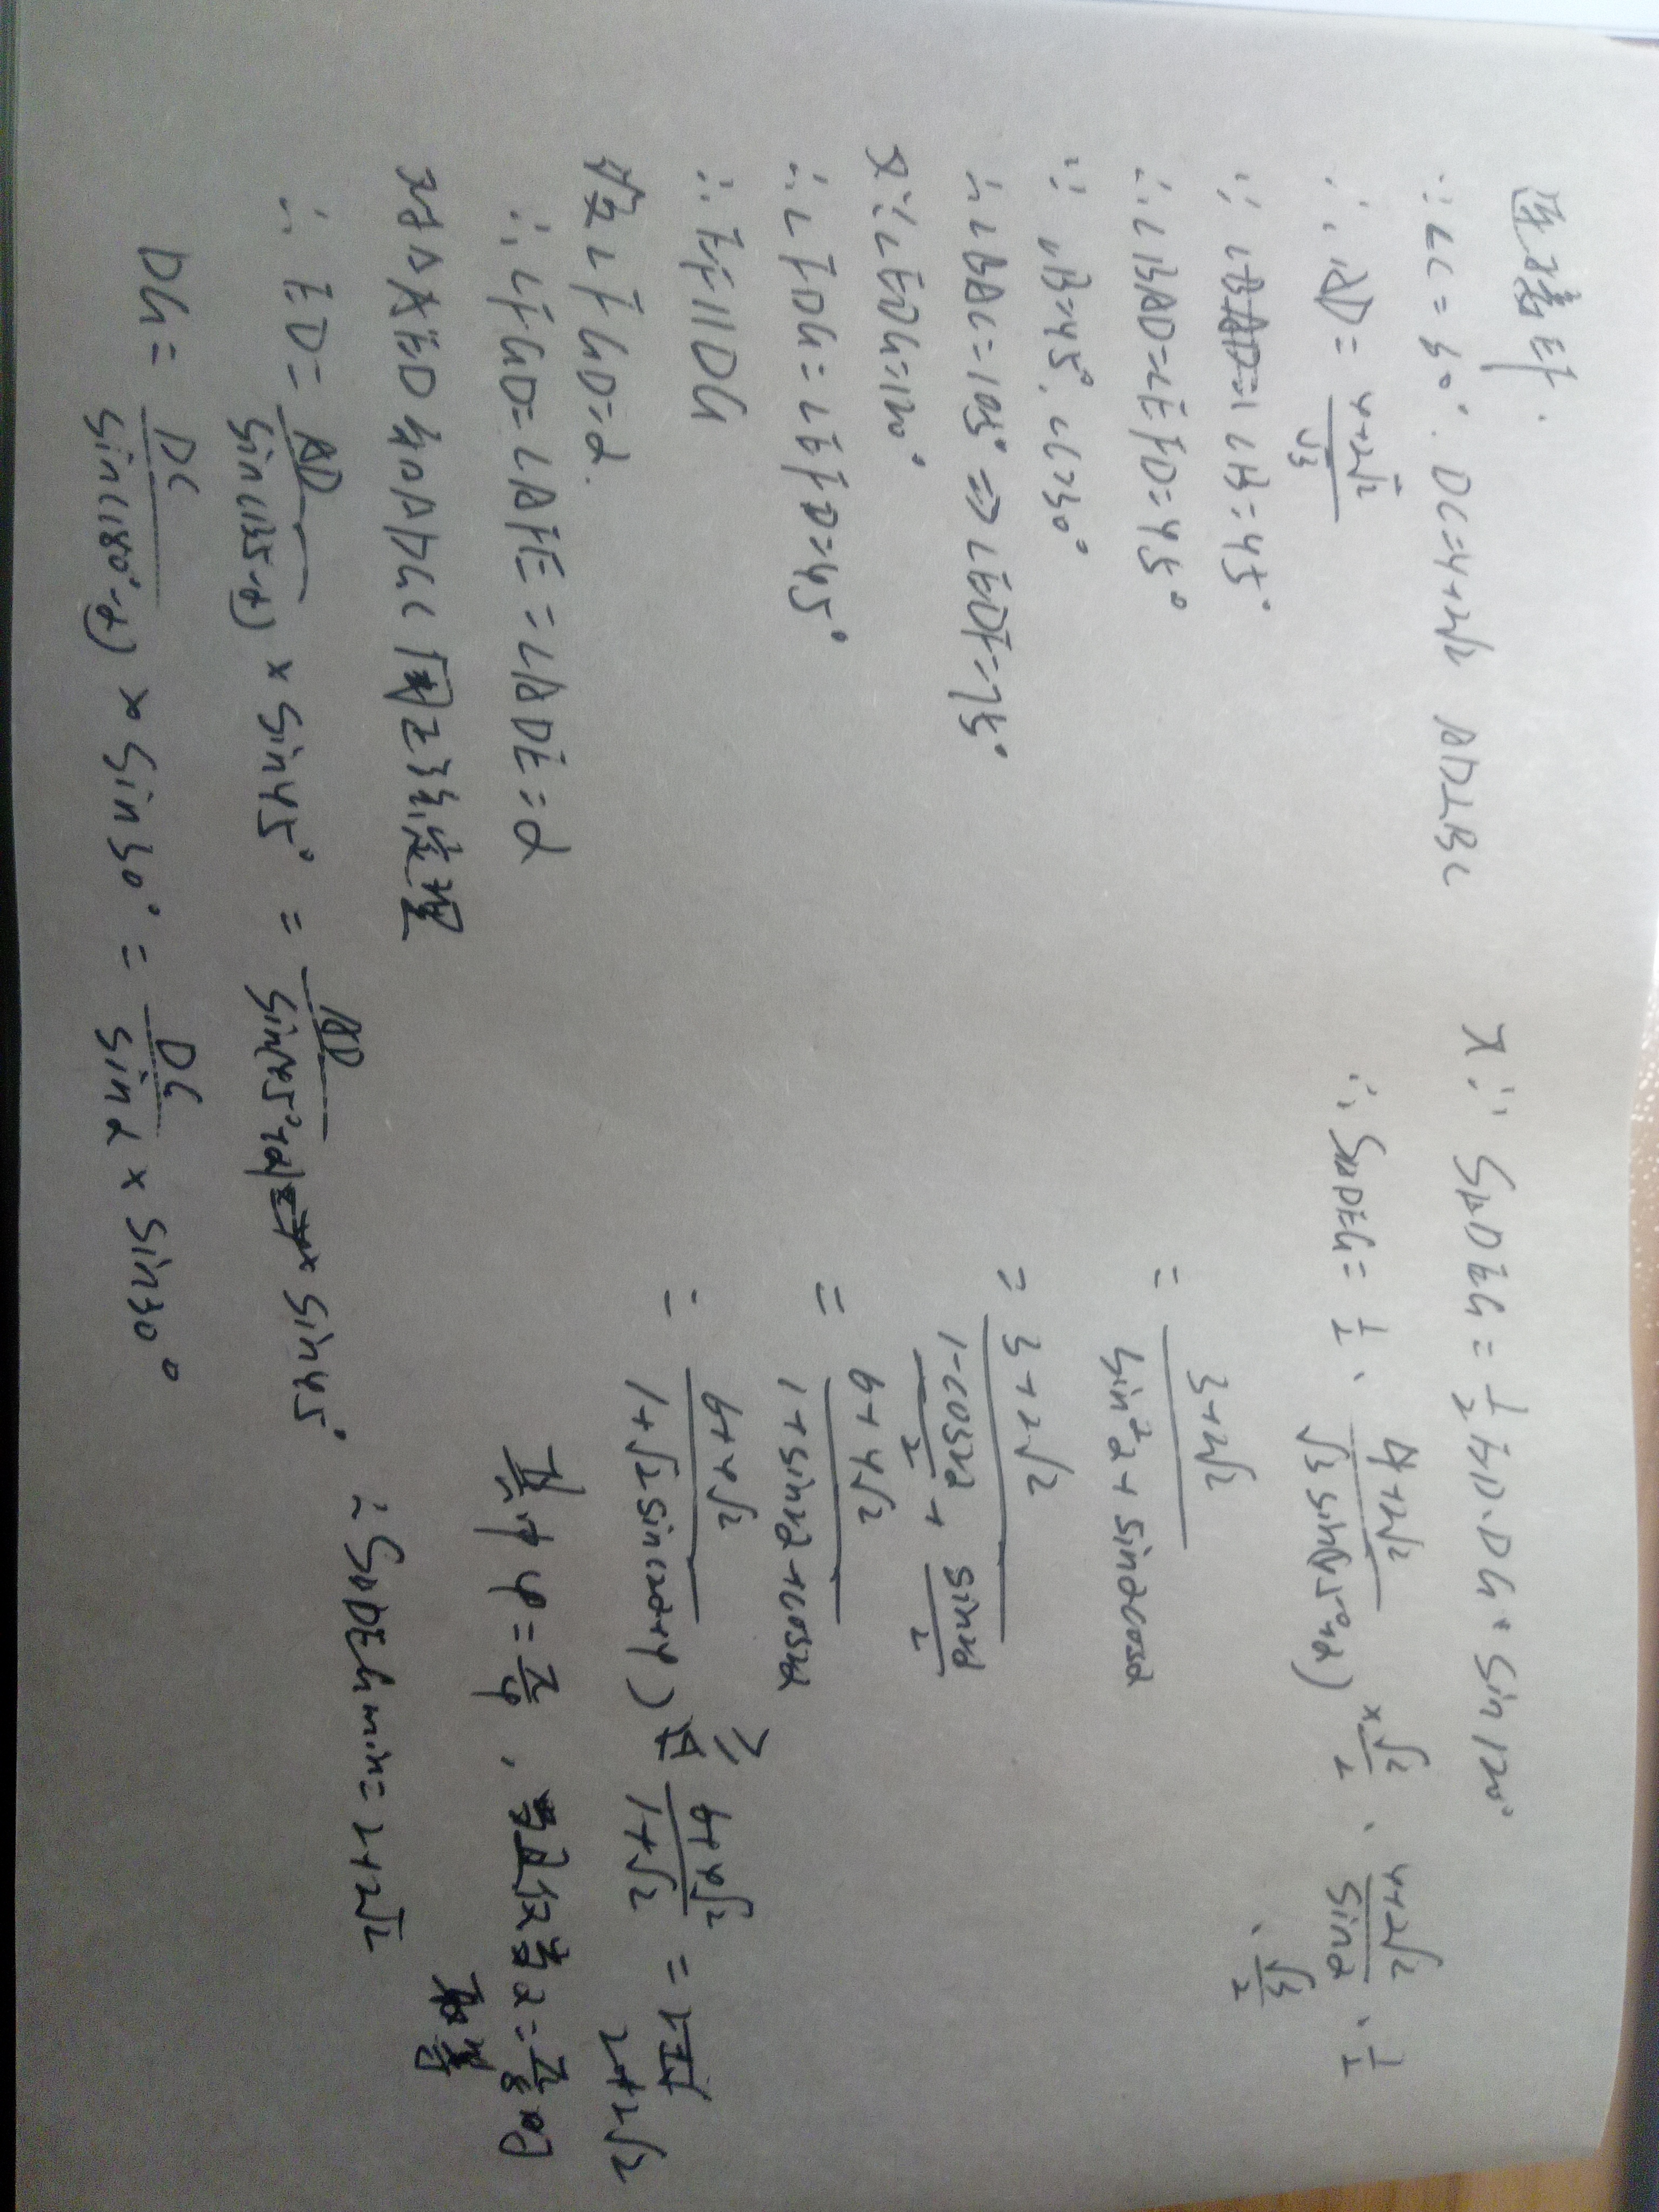 ∵∠C=30°, DC=4+2√2 AD⊥BC
∴ AD = (4+2√2)/√3
∵ ∠B=45°
∴ ∠BAD=∠EFD=45°
∵ ∠B=45°, ∠C=30°
∴ ∠BAC=105° ⇒ ∠EDF=75°
又∵∠EDG=120°
∴ ∠FDG=∠EFD=45°
∴ EF∥DG
设∠FGD=α.
∴ ∠FGD=∠AFE=∠ADE=α
对△AED和△DGC用正弦定理
∴ ED = AD/sin(135-α) × sin45° = AD/sin(45°+α) × sin45°
DG = DC/sin(180°-α) × sin30° = DC/sinα × sin30°
又∵ S△DEG = 1/2 ED·DG·sin120°
∴ S△DEG = 1/2 · (4+2√2)/(√3 sin(45°+α)) × √2/2 · (4+2√2)/sinα · 1/2 · √3/2
= (3+2√2)/(sin²α + sinαcosα)
= (3+2√2)/((1-cos2α)/2 + sin2α/2)
= (6+4√2)/(1+sin2α+cos2α)
= (6+4√2)/(1+√2sin(2α+φ)) ≥ (6+4√2)/(1+√2) = 2+2√2
其中 φ=π/4, 当且仅当α=π/8时
取等
∴ S△DEGmin=2+2√2